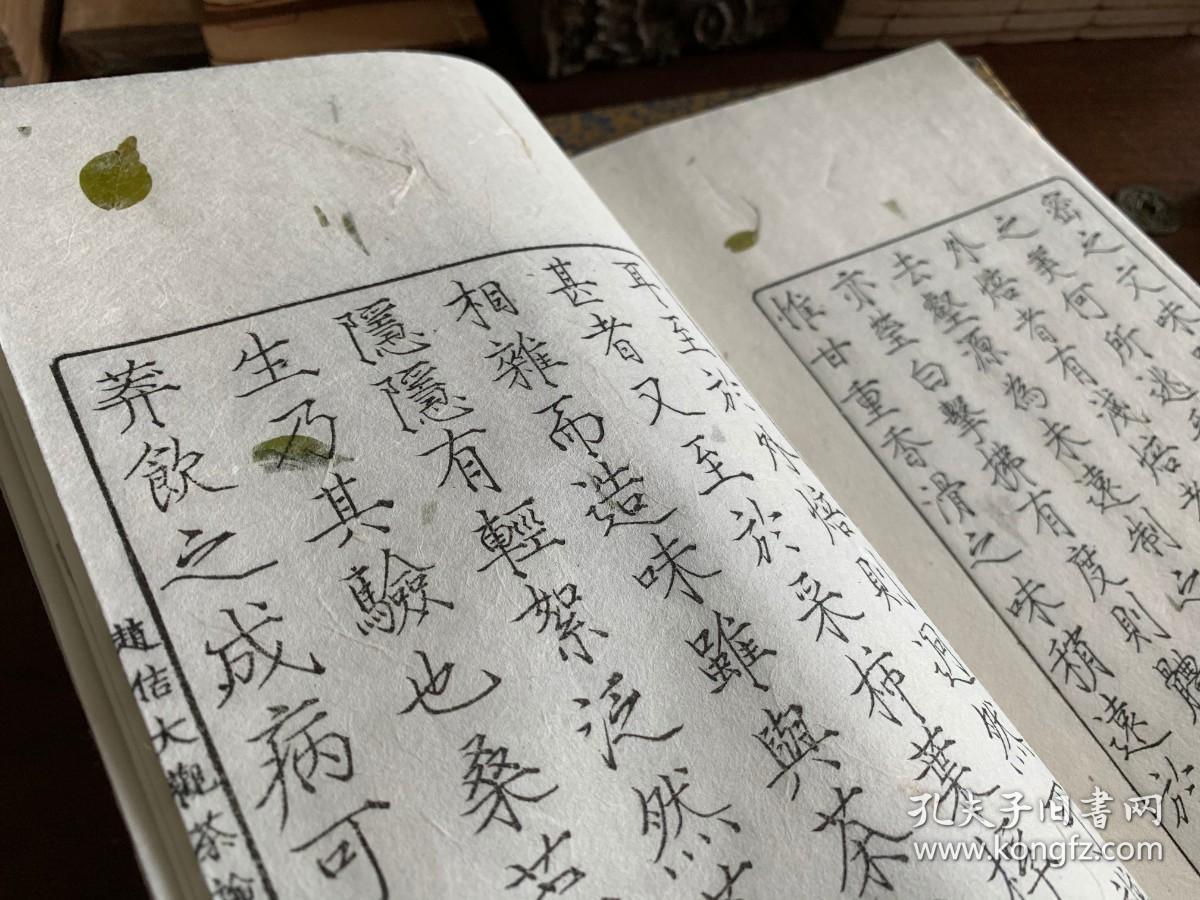 密之文味
之美何所逃
外焙者有減焙
去壑源為未遠制之
亦瑩白擊拂有度則體
惟甘重香滑之味稍遠於
耳至於外焙則迥然
甚者又至於采柿葉桴
相雜而造味雖與茶
隱隱有輕絮泛然
生乃其驗也桑苧
莽飲之成病可
趙佶大觀茶論
孔夫子旧书网
www.kongfz.com